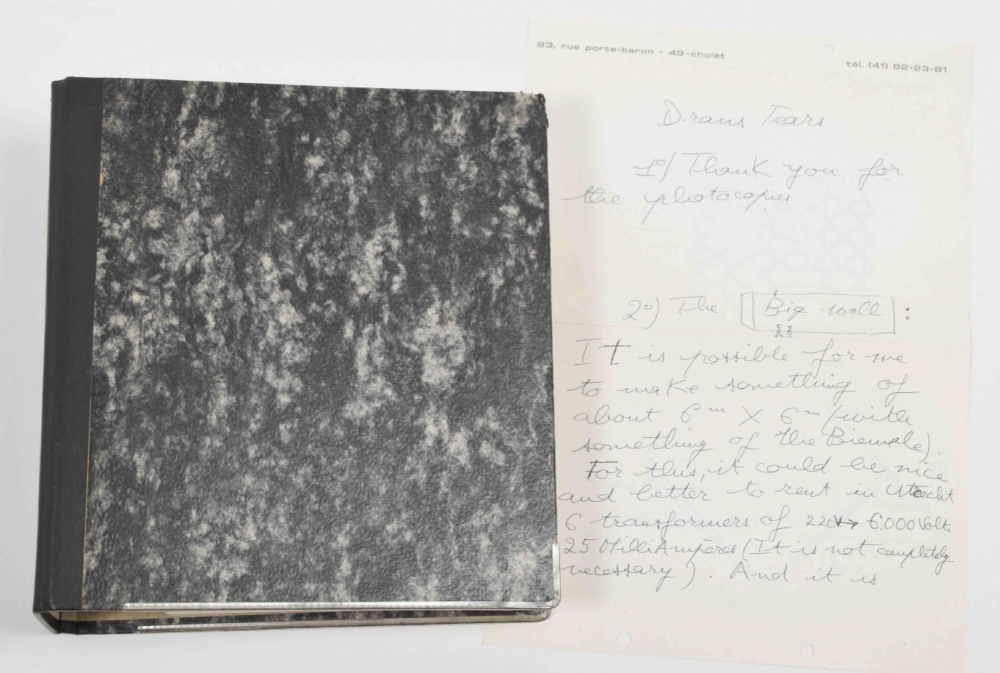 83, rue porte-baron - 49-cholet
tél. (41) 62-23-81
Drans Tears
1°/ Thank you for
the photocopies
2°) The Big wall :
It is possible for me
to make something of
about 6m X 6m (with
something of the Biennale).
For this, it could be nice
and better to rent in Utrecht
6 transformers of 220V→ 6.000 Volts
25 MilliAmpères (It is not completely
necessary). And it is